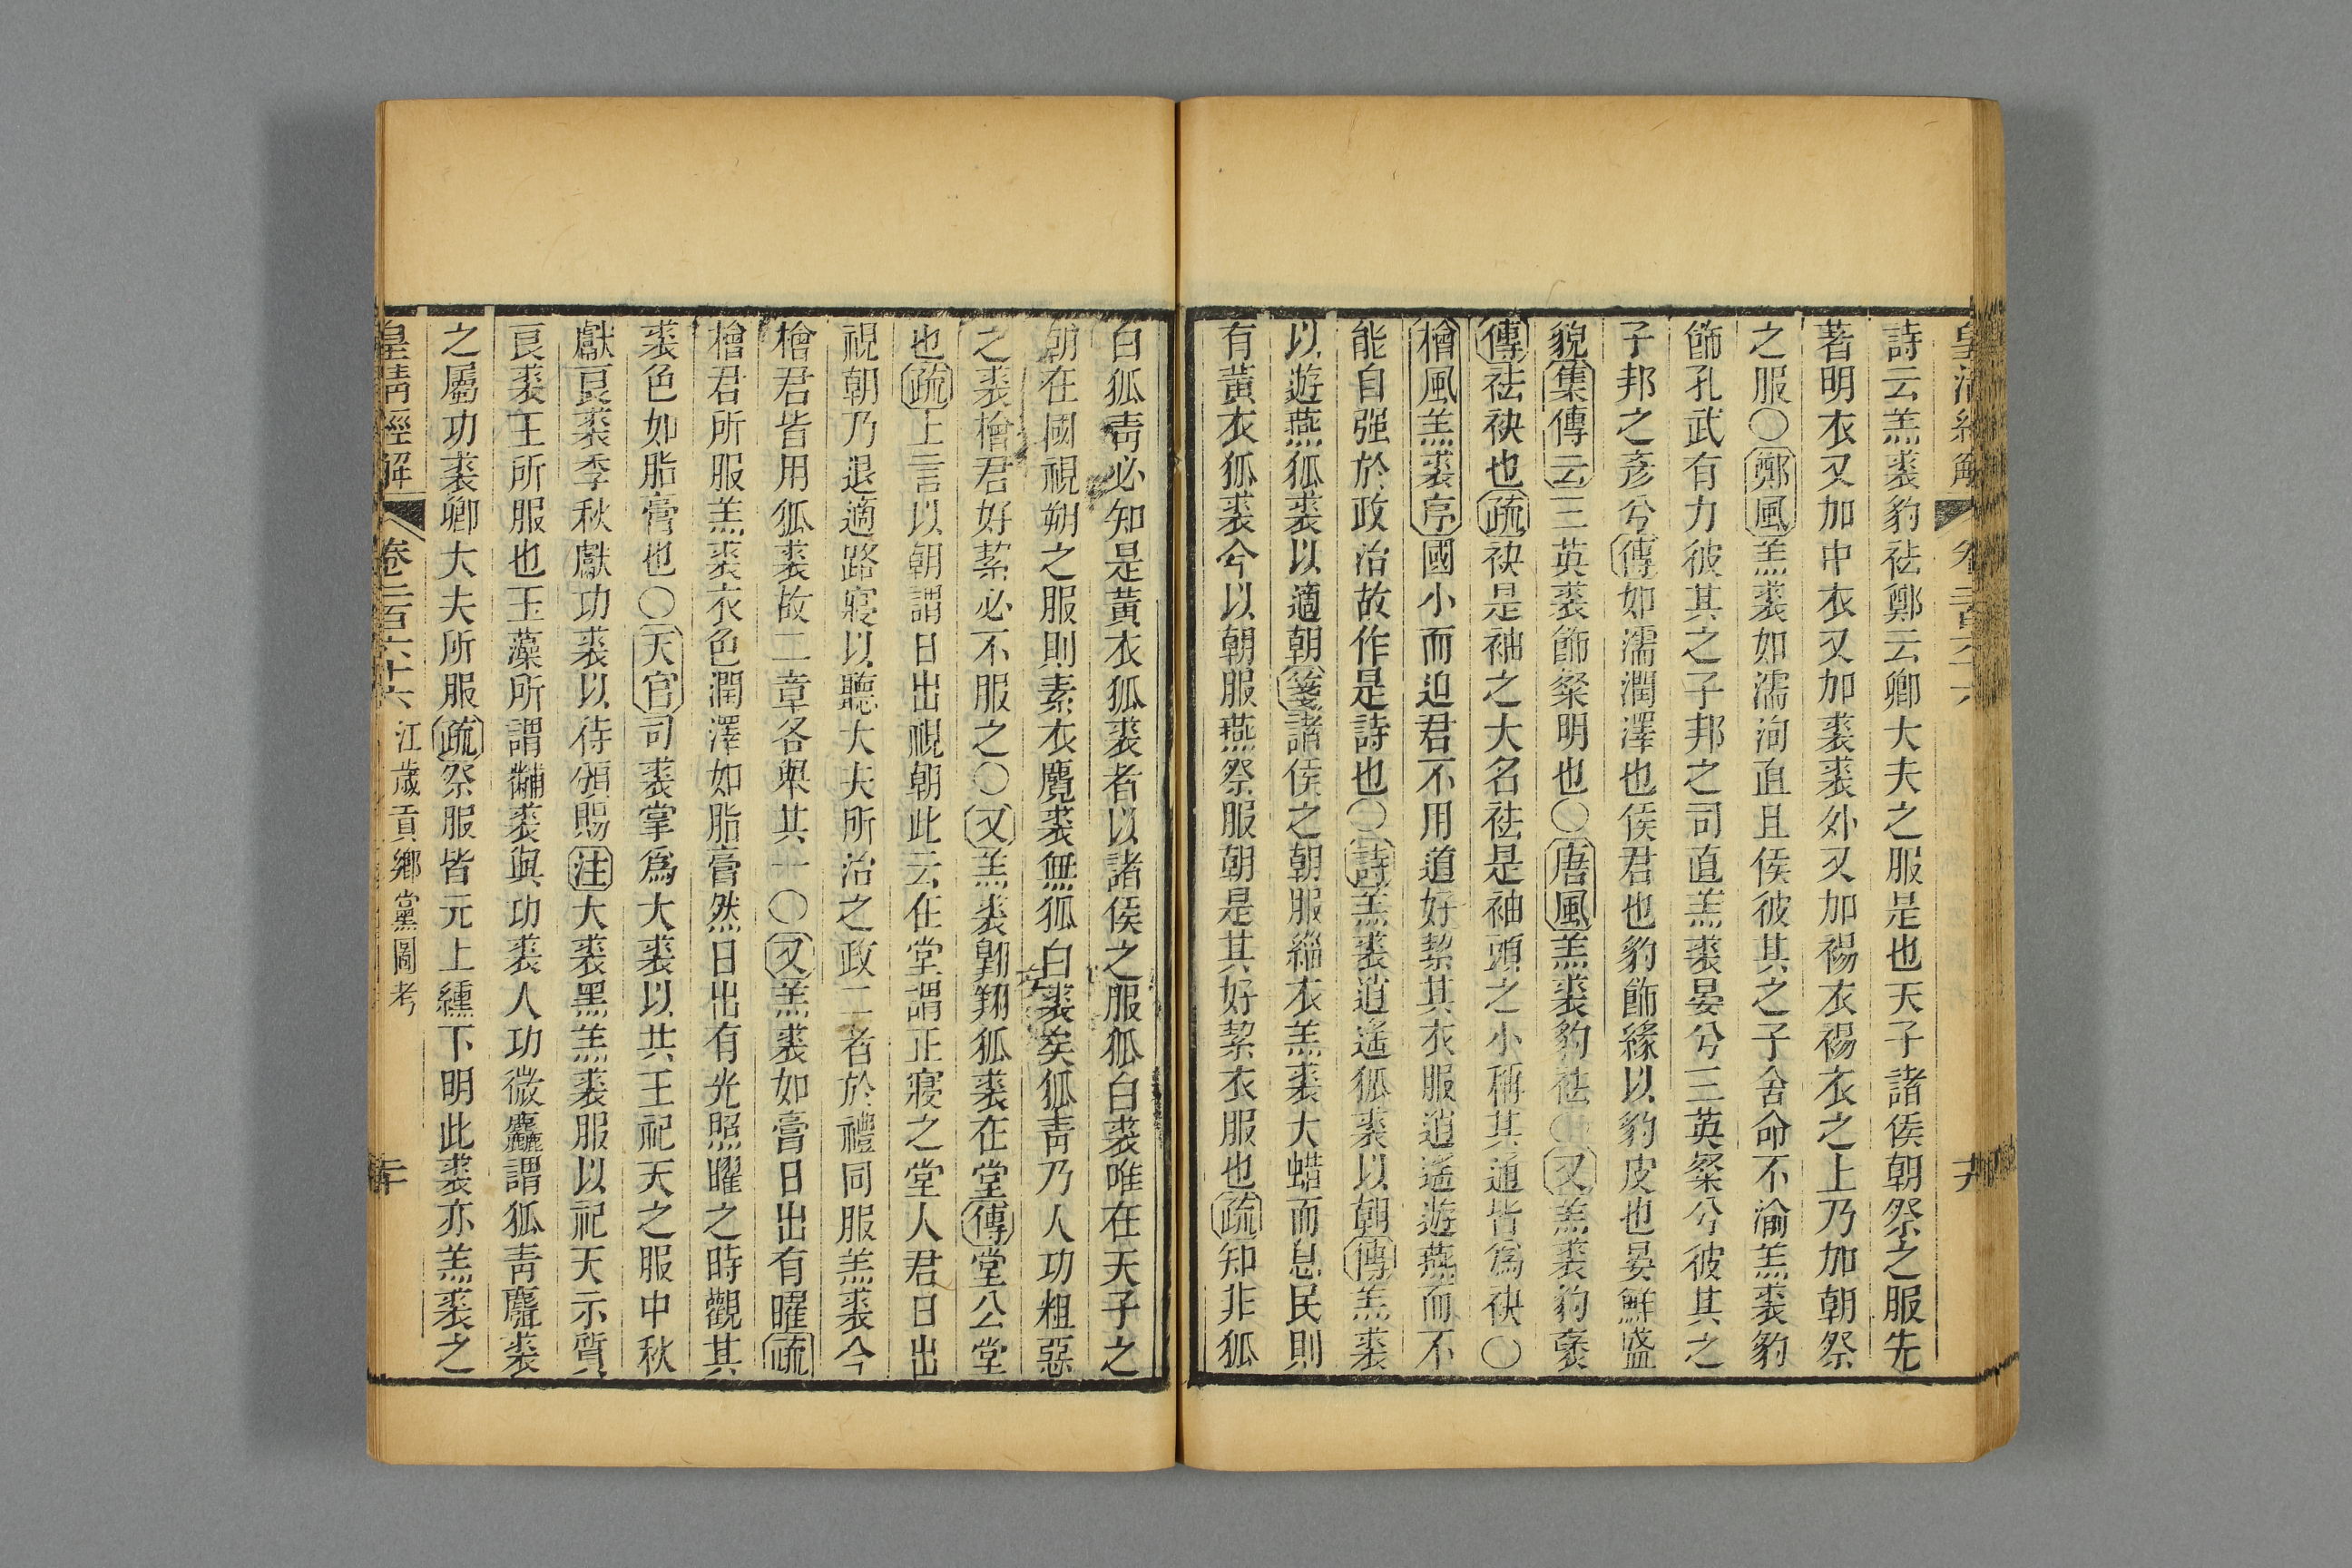 皇清經解 卷二百六十六 十九
詩云羔裘豹袪鄭云卿大夫之服是也天子諸侯朝祭之服先
著明衣又加中衣又加裘裘外又加裼衣裼衣之上乃加朝祭
之服○鄭風羔裘如濡洵直且侯彼其之子舍命不渝羔裘豹
飾孔武有力彼其之子邦之司直羔裘晏兮三英粲兮彼其之
子邦之彥兮傳如濡潤澤也侯君也豹飾緣以豹皮也晏鮮盛
貌集傳云三英裘飾粲明也○唐風羔裘豹袪○又羔裘豹褎
傳袪袂也疏袂是袖之大名袪是袖頭之小稱其通皆爲袂○
檜風羔裘序國小而迫君不用道好絜其衣服逍遙遊燕而不
能自强於政治故作是詩也○詩羔裘逍遙狐裘以朝傳羔裘
以遊燕狐裘以適朝箋諸侯之朝服緇衣羔裘大蜡而息民則
有黃衣狐裘今以朝服燕祭服朝是其好絜衣服也疏知非狐
白狐靑必知是黃衣狐裘者以諸侯之服狐白裘唯在天子之
朝在國視朔之服則素衣麑裘無狐白裘矣狐靑乃人功粗惡
之裘檜君好絜必不服之○又羔裘翺翔狐裘在堂傳堂公堂
也疏上言以朝謂日出視朝此云在堂謂正寢之堂人君日出
視朝乃退適路寢以聽大夫所治之政二者於禮同服羔裘今
檜君皆用狐裘故二章各舉其一○又羔裘如膏日出有曜疏
檜君所服羔裘衣色潤澤如脂膏然日出有光照曜之時觀其
裘色如脂膏也○天官司裘掌爲大裘以共王祀天之服中秋
獻良裘季秋獻功裘以待頒賜注大裘黑羔裘服以祀天示質
良裘王所服也玉藻所謂黼裘與功裘人功微麤謂狐靑麛裘
之屬功裘卿大夫所服疏祭服皆元上纁下明此裘亦羔裘之
皇淸經解 卷二百六十六 江歲貢鄕黨圖考 二十